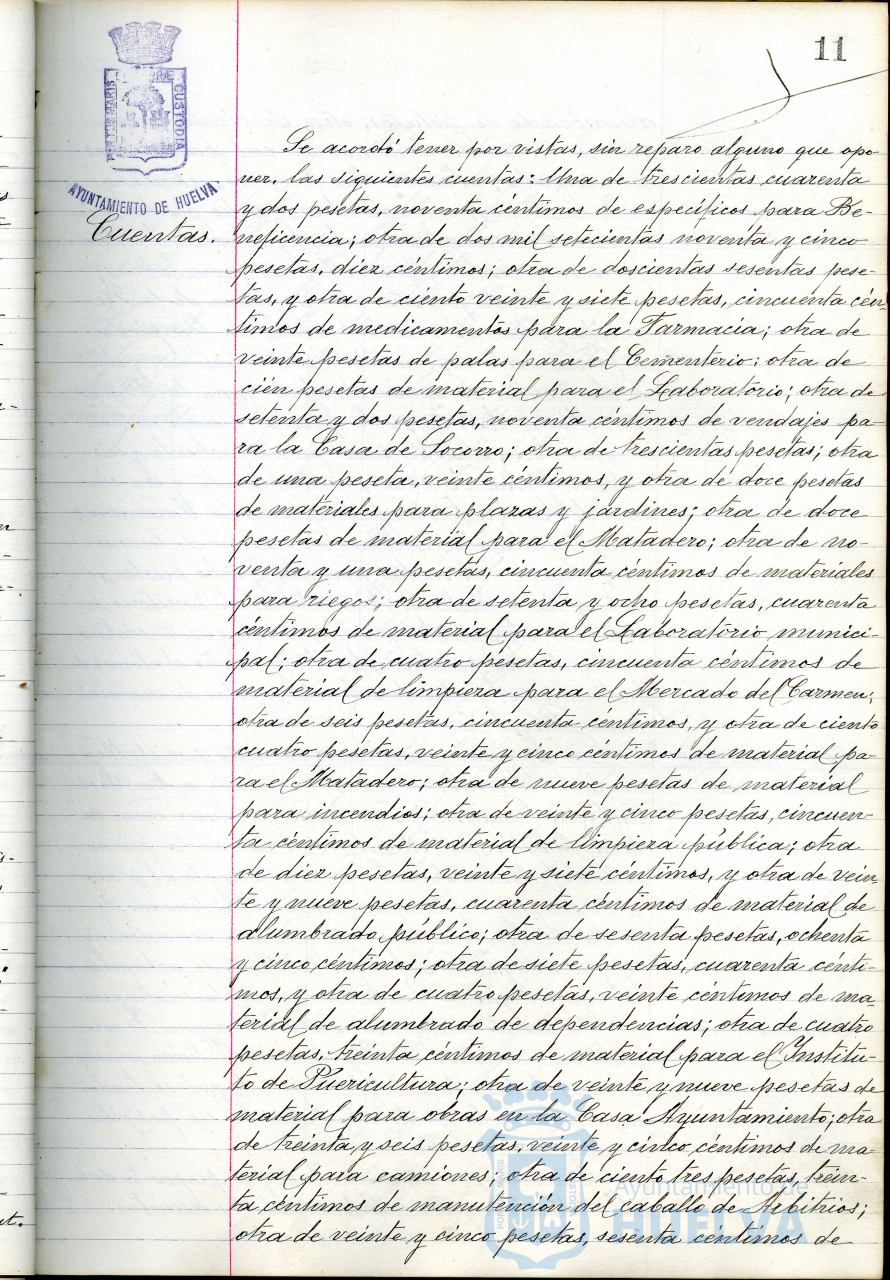 11
PORTUS MARIS ET TERRÆ CUSTODIA
AYUNTAMIENTO DE HUELVA
Cuentas.
Se acordó tener por vistas, sin reparo alguno que opo-
ner, las siguientes cuentas: Una de trescientas cuarenta
y dos pesetas, noventa céntimos de específicos para Be-
neficencia; otra de dos mil setecientas noventa y cinco
pesetas, diez céntimos; otra de doscientas sesentas pese-
tas, y otra de ciento veinte y siete pesetas, cincuenta cén-
timos de medicamentos para la Farmacia; otra de
veinte pesetas de palas para el Cementerio; otra de
cién pesetas de material para el Laboratorio; otra de
setenta y dos pesetas, noventa céntimos de vendajes pa-
ra la Casa de Socorro; otra de trescientas pesetas; otra
de una peseta, veinte céntimos, y otra de doce pesetas
de materiales para plazas y jardines; otra de doce
pesetas de material para el Matadero; otra de no-
venta y una pesetas, cincuenta céntimos de materiales
para riegos; otra de setenta y ocho pesetas, cuarenta
céntimos de material para el Laboratorio munici-
pal; otra de cuatro pesetas, cincuenta céntimos de
material de limpieza para el Mercado del Carmen;
otra de seis pesetas, cincuenta céntimos, y otra de ciento
cuatro pesetas, veinte y cinco céntimos de material pa-
ra el Matadero; otra de nueve pesetas de material
para incendios; otra de veinte y cinco pesetas, cincuen-
ta céntimos de material de limpieza pública; otra
de diez pesetas, veinte y siete céntimos, y otra de vein-
te y nueve pesetas, cuarenta céntimos de material de
alumbrado público; otra de sesenta pesetas, ochenta
y cinco céntimos; otra de siete pesetas, cuarenta cénti-
mos, y otra de cuatro pesetas, veinte céntimos de ma-
terial de alumbrado de dependencias; otra de cuatro
pesetas, treinta céntimos de material para el Institu-
to de Puericultura; otra de veinte y nueve pesetas de
material para obras en la Casa Ayuntamiento; otra
de treinta y seis pesetas, veinte y cinco céntimos de ma-
terial para camiones; otra de ciento tres pesetas, trein-
ta céntimos de manutención del caballo de Arbitrios;
otra de veinte y cinco pesetas, sesenta céntimos de
Ayuntamiento de
HUELVA